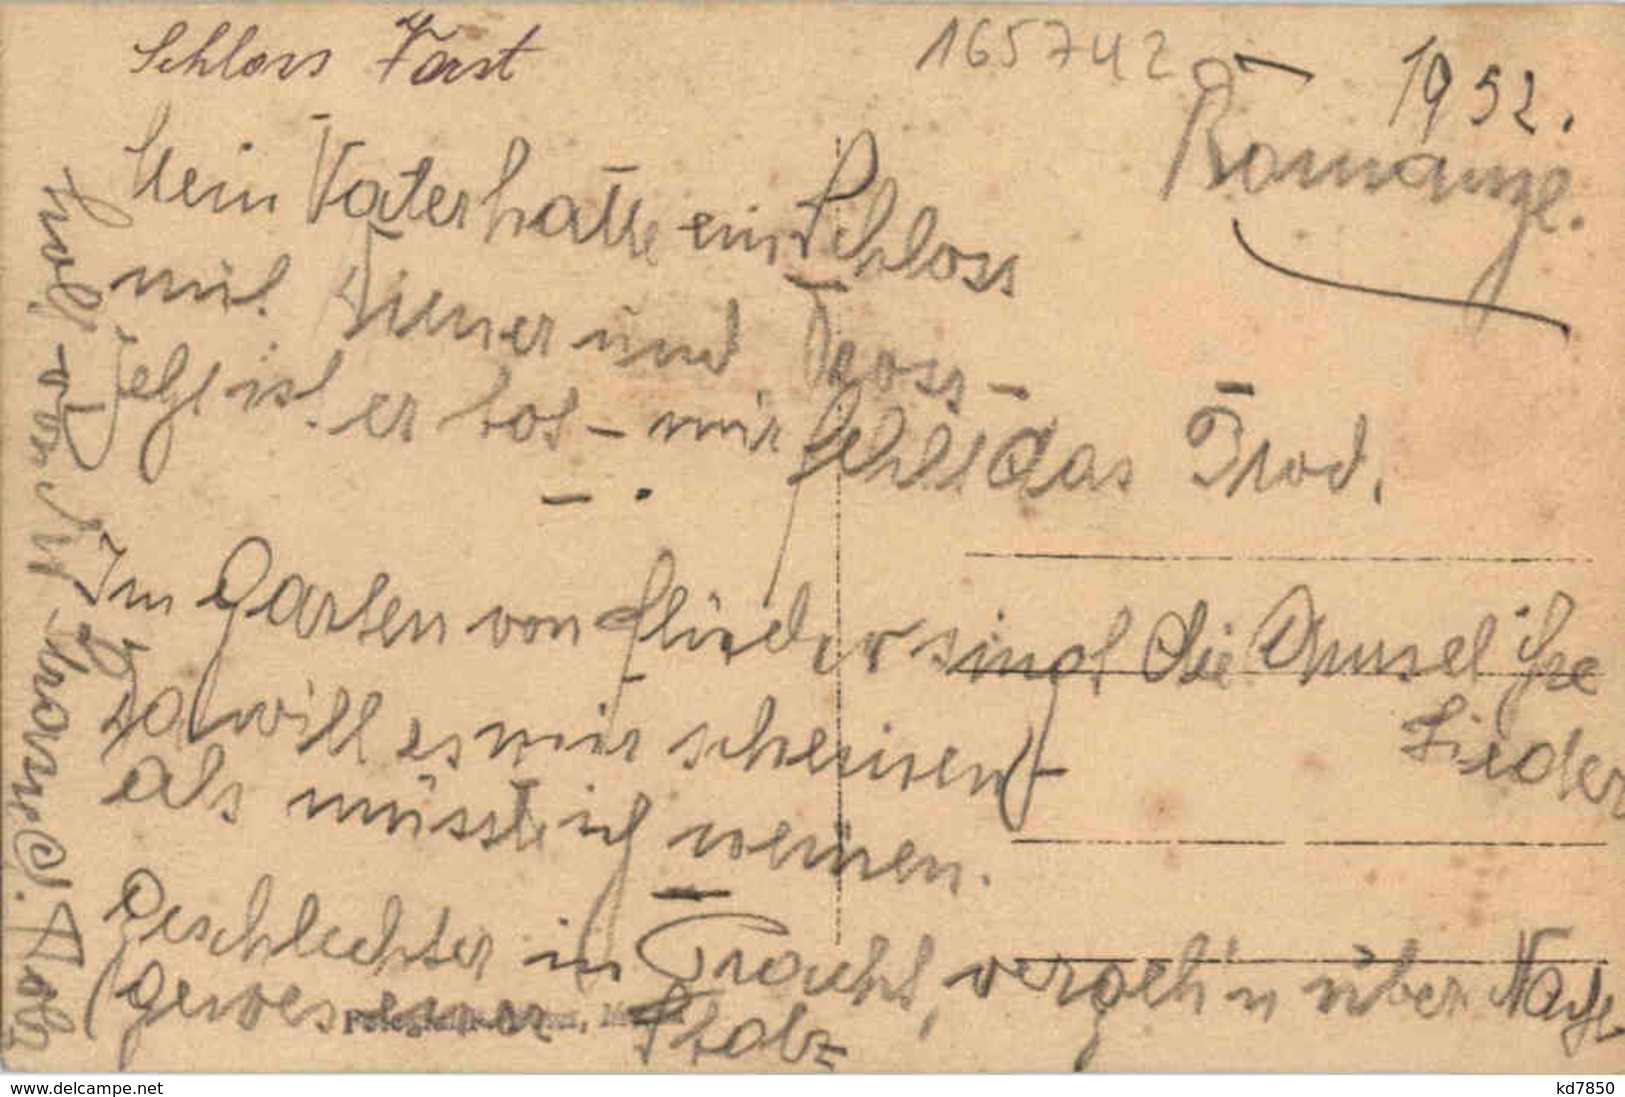 Schloss Forst
165742
1952.
Romanze.
Mein Vater hatte ein Schloss
mit Diener und Tross –
Jetzt ist er tot – mir fehlt das Brod.
Im Garten von Flieder singt die Amsel ihre
Lieder
Da will es mir scheinen –
als müsste ich weinen.
Geschlechter in Pracht, vergeh'n über Nacht
gewesener Stolz
von
www.delcampe.net
kd7850